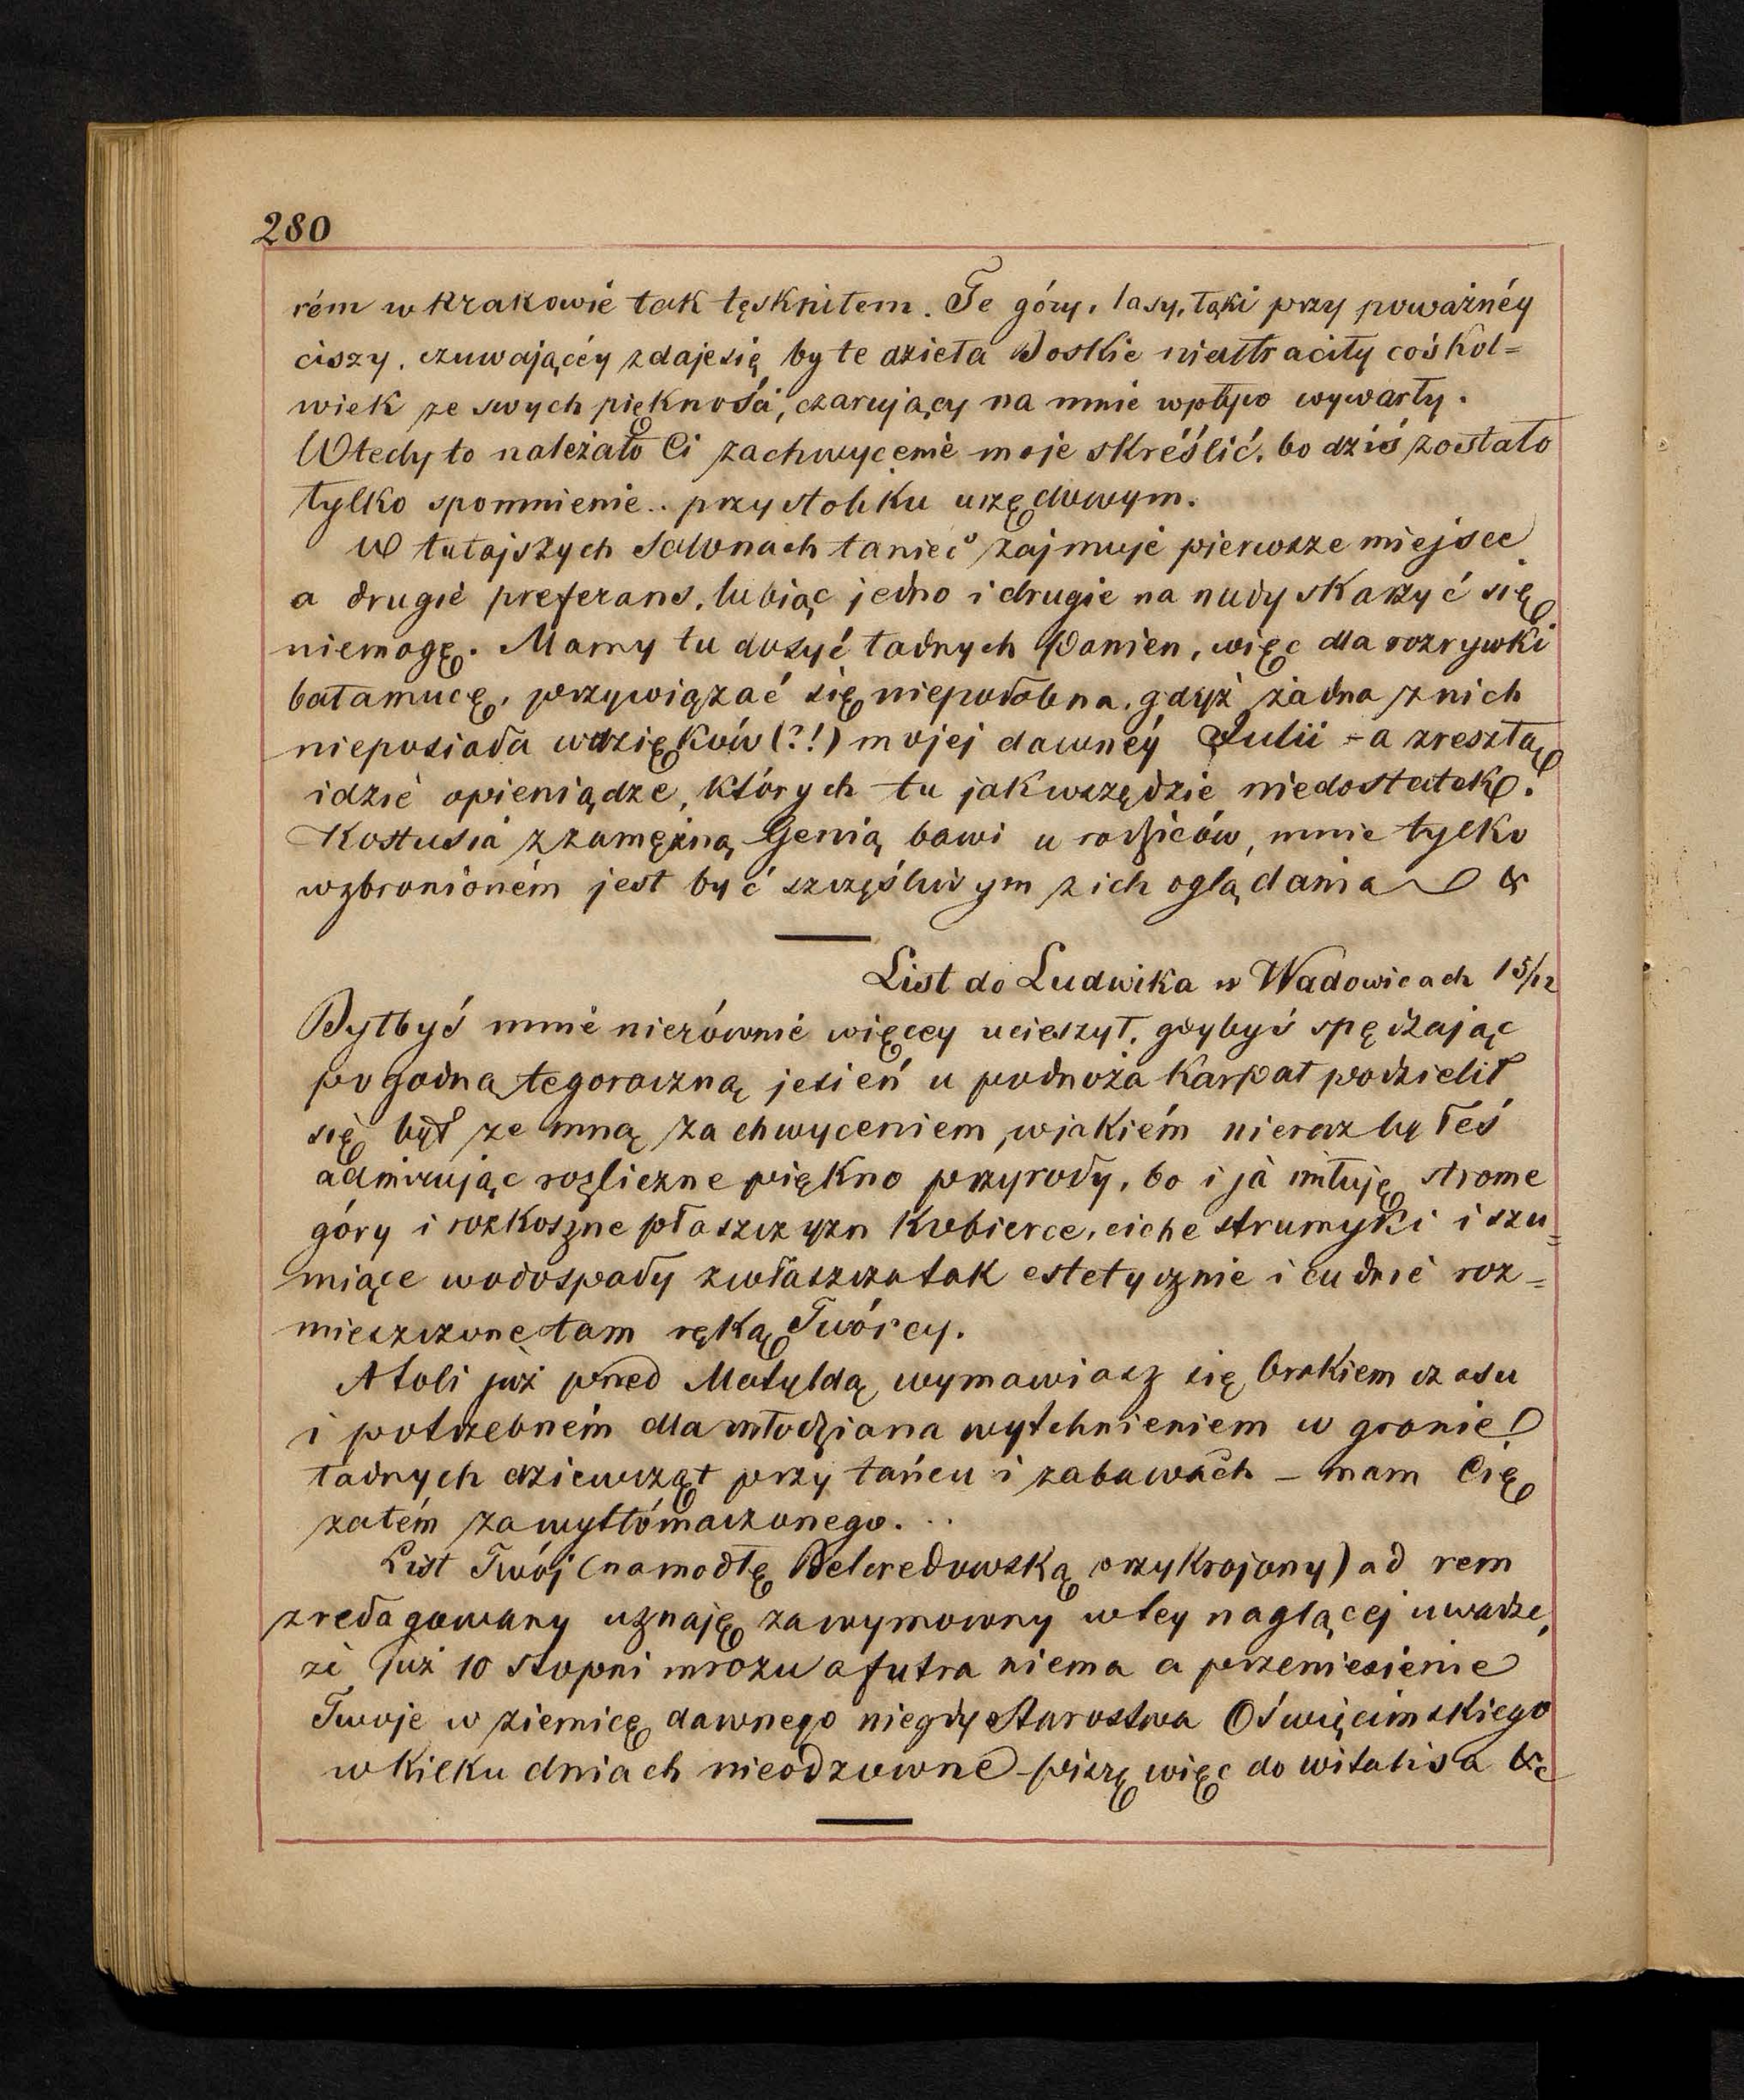 280
rém w Krakowie tak tęskniłem. Te góry, lasy, łąki przy poważnéy
ciszy, czuwającéy zdaje się by te dzieła Boskie niestraciły cośkol=
wiek ze swych piękności, czarujący na mnie wpływ wywarły.
Wtedy to należało Ci zachwycenie moje skréślić, bo dziś zostało
tylko spomnienie.. przy stoliku urzędowym.
W tutajszych Salonach taniec zajmuje pierwsze miejsce
a drugie preferans, lubiąc jedno i drugie na nudy skarzyć się
niemogę. Mamy tu dosyć ładnych Panien, więc dla rozrywki
bałamucę, przywiązać się niepodobna, gdyż żadna z nich
nieposiada wdzięków (?!) mojej dawnéy Julii - a zresztą
idzie opieniądze, których tu jak wszędzie niedostatek.
Kostusia z zamężną Genią bawi u rodziców, mnie tylko
wzbronioném jest być szczęśliwym z ich oglądania &
List do Ludwika w Wadowicach 15/12
Byłbyś mnie nierównie więcey ucieszył, gdybyś spędzając
pogodną tegoroczną jesień u podnoża Karpat podzielił
się był ze mną zachwyceniem, w jakiém nieraz byłeś
admirując rozliczne piękno przyrody, bo i ja miłuję strome
góry i rozkoszne płaszczyzn kobierce, ciche strumyki i szu=
miące wodospady zwłaszcza tak estetycznie i cudnie roz=
mieszczone tam ręką Twórcy.
Atoli już przed Matyldą wymawiasz się brakiem czasu
i potrzebném dla młodziana wytchnieniem w gronie
ładnych dziewcząt przy tańcu i zabawach - mam Cię
zatém za wytłómaczonego...
List Twój (na modłę Belcredowską przykrojony) ad rem
zredagowany uznaję za wymowny w tey naglącej uwadze,
że już 10 stopni mrozu a futra niema a przeniesienie
Twoje w ziemicę dawnego niegdy Starostwa Oświęcimskiego
w kilku dniach nieodzowne - piszę więc do witalisa &c